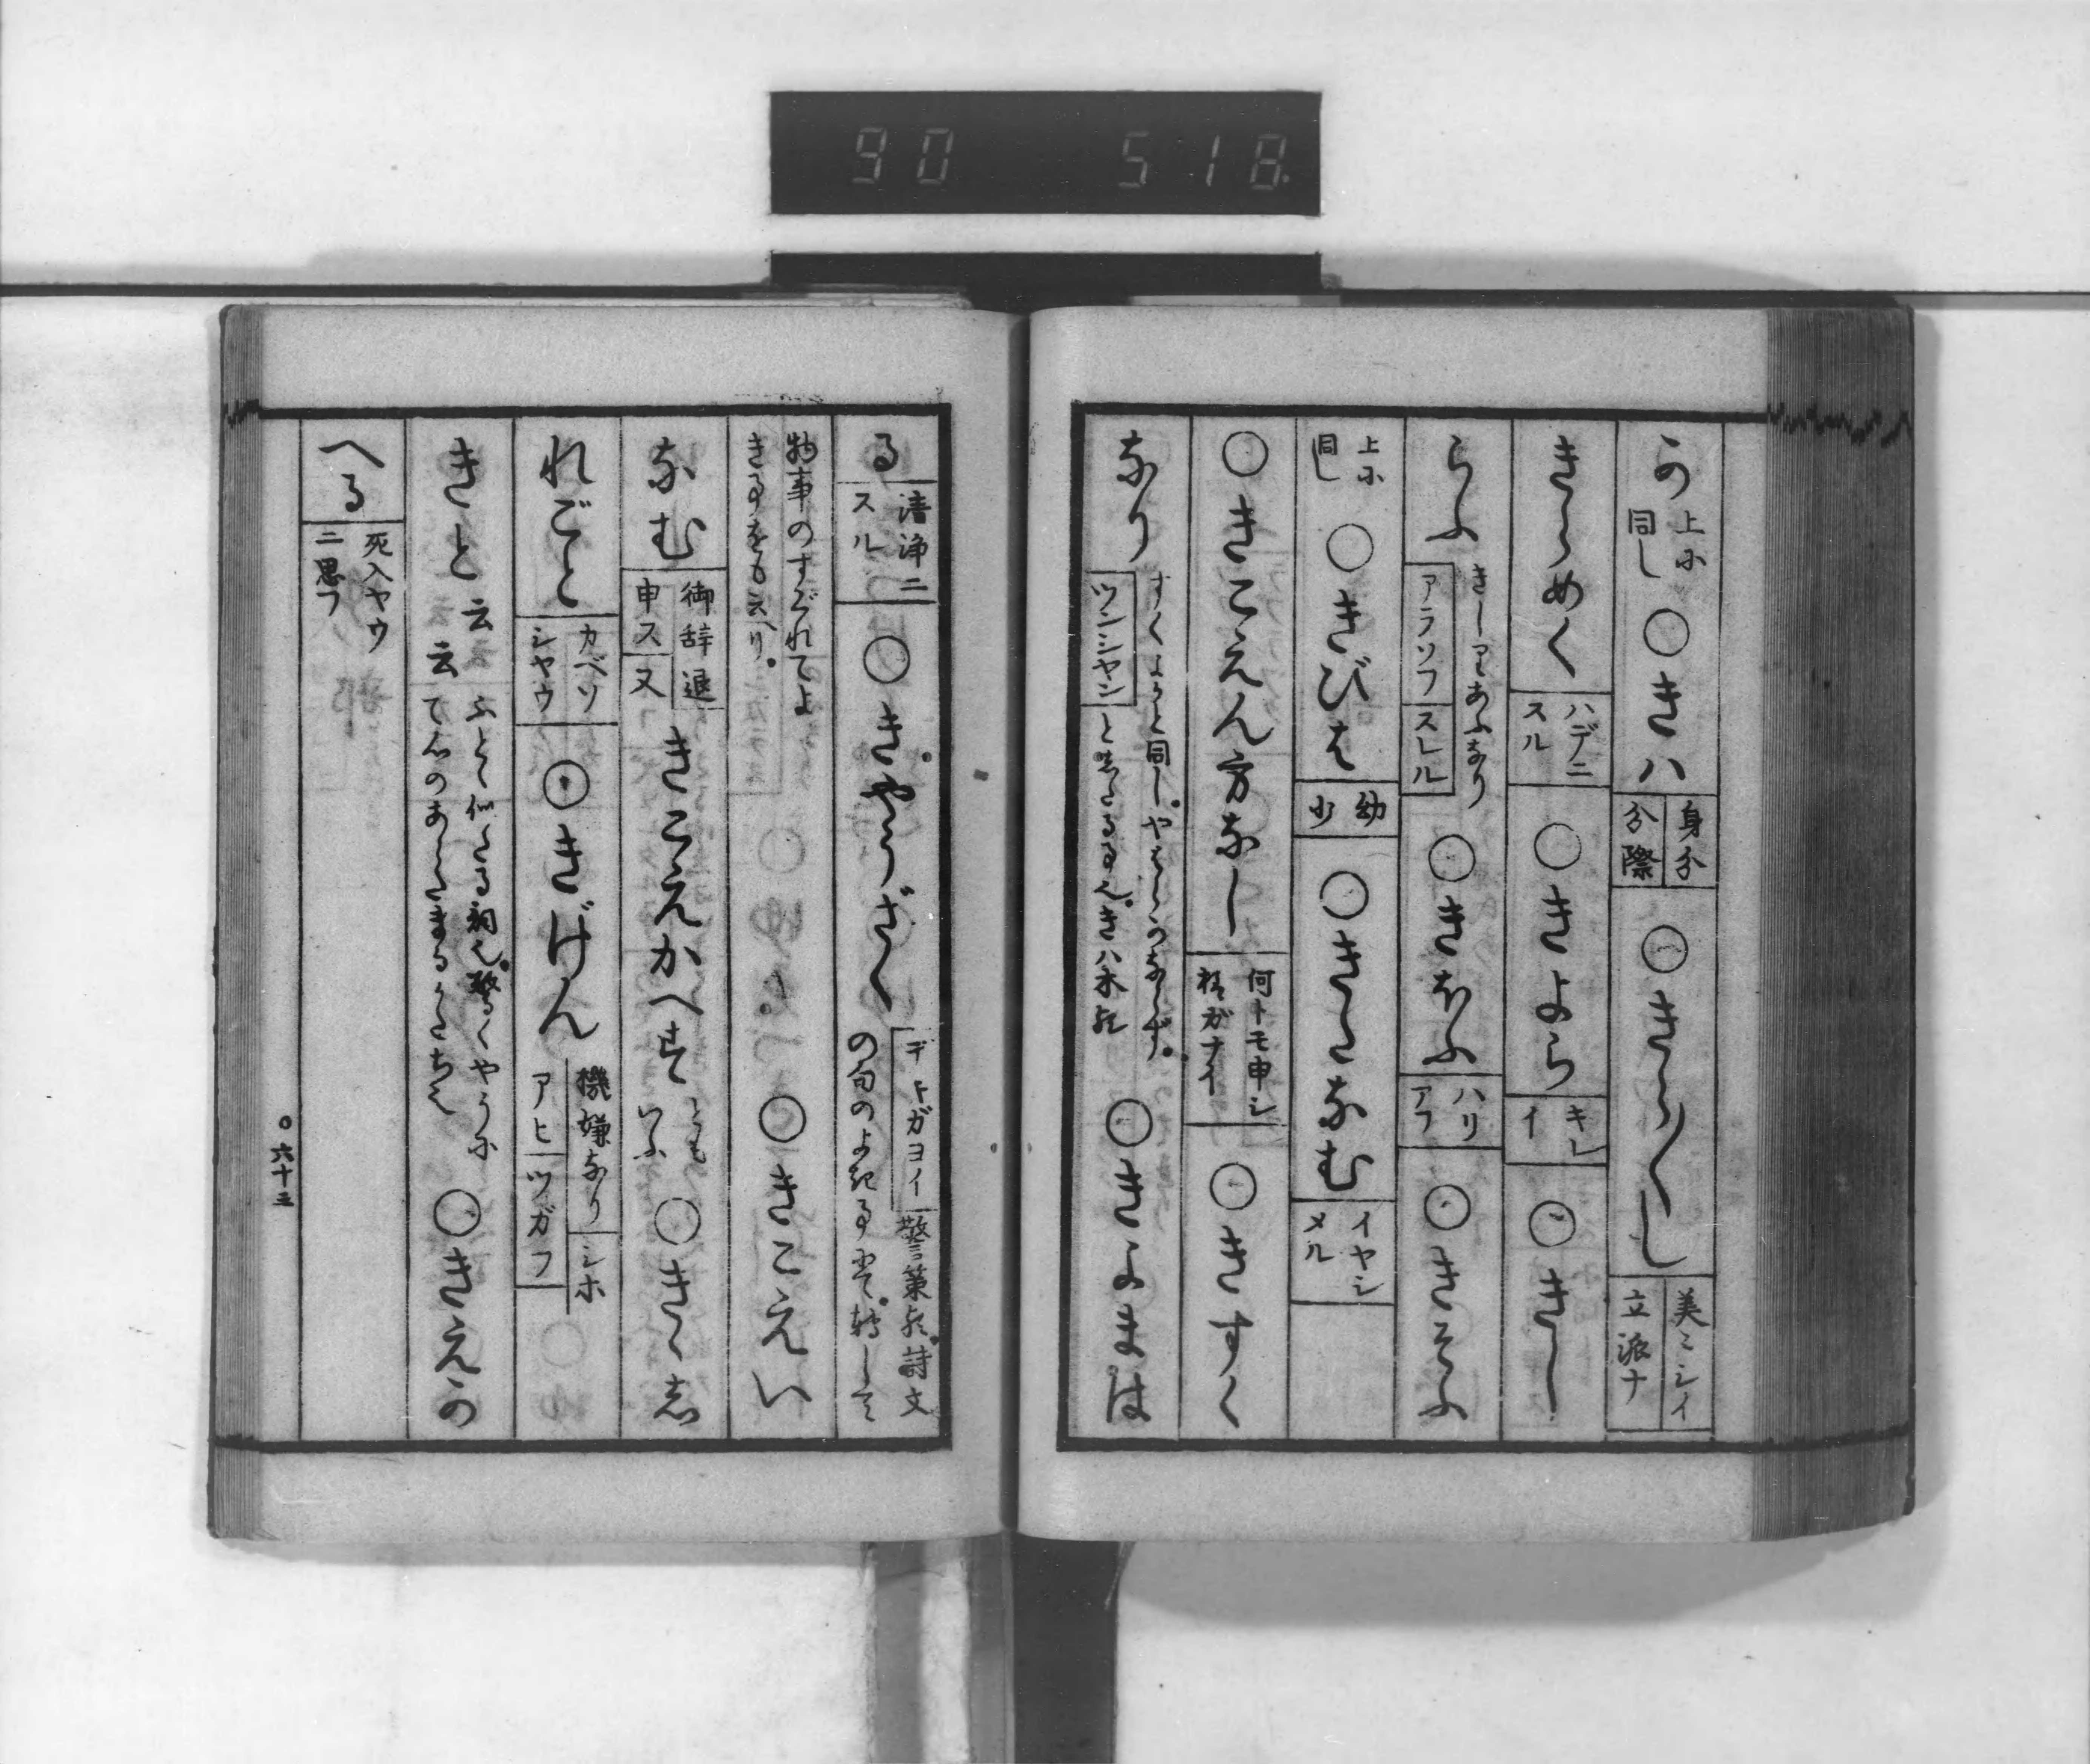 90 518
の 上に同し ○きハ 身分 分際 ○きら〱し 美ミシイ 立派ナ
きらめく ハデニスル ○きよら キレイ ○きし
らふ きしりあふなり アラソフ スレル ○きほふ ハリアフ ○きそふ
上に同し ○きびは 幼少 ○きたなむ イヤシメル
○きこえん方なし 何トモ申シ様ガナイ ○きすく
なり すくよかと同し。やはらかならず。ツンシヤン としたる ○きよまは
る 清浄ニスル ○きやうざく デキガヨイ 警策 詩文の句のよき 転して
物事のすぐれてよき事をも云へり。 ○きこえい
なむ 御辞退申ス 又 きこえかへす とも いふ ○きゝし
れごと カベソシヤウ ○きげん 機嫌なり シホアヒ ツガフ
きと 云云 ふと 似たる 詞也。 驚くやうに て心の ○きえの
へる 死入ヤウニ思フ
○六十三